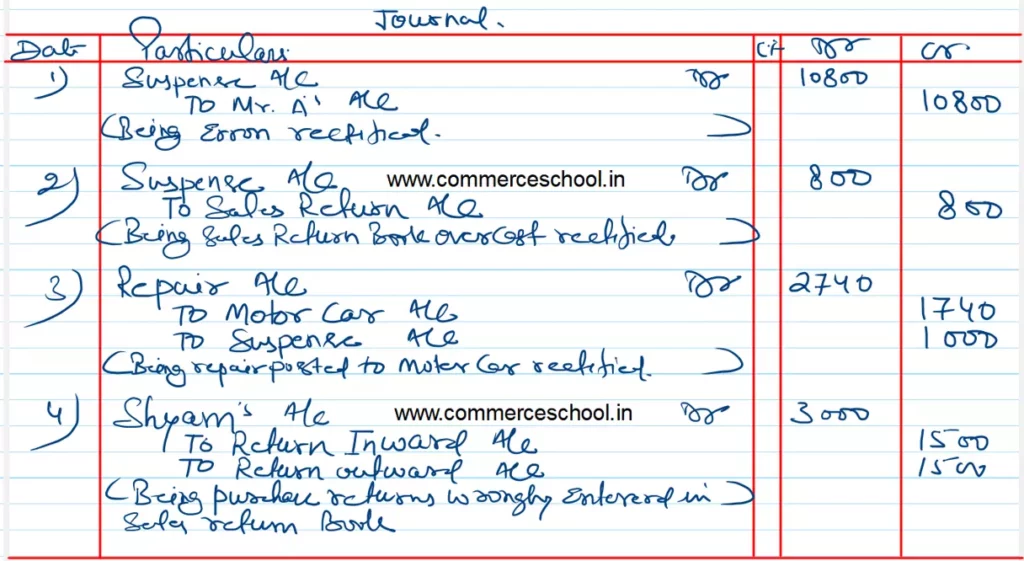 Journal.
Date Particulars. L.F Dr Cr
1) Suspense A/c Dr 10800
To Mr. A's A/c 10800
(Being Error rectified. )
2) Suspense A/c www.commerceschool.in Dr 800
To Sales Return A/c 800
(Being Sales Return Book overcast rectified. )
3) Repair A/c Dr 2740
To Motor Car A/c 1740
To Suspense A/c 1000
(Being repair posted to Motor Car rectified. )
4) Shyam's A/c www.commerceschool.in Dr 3000
To Return Inward A/c 1500
To Return outward A/c 1500
(Being purchase returns wrongly Entered in )
Sales return Book